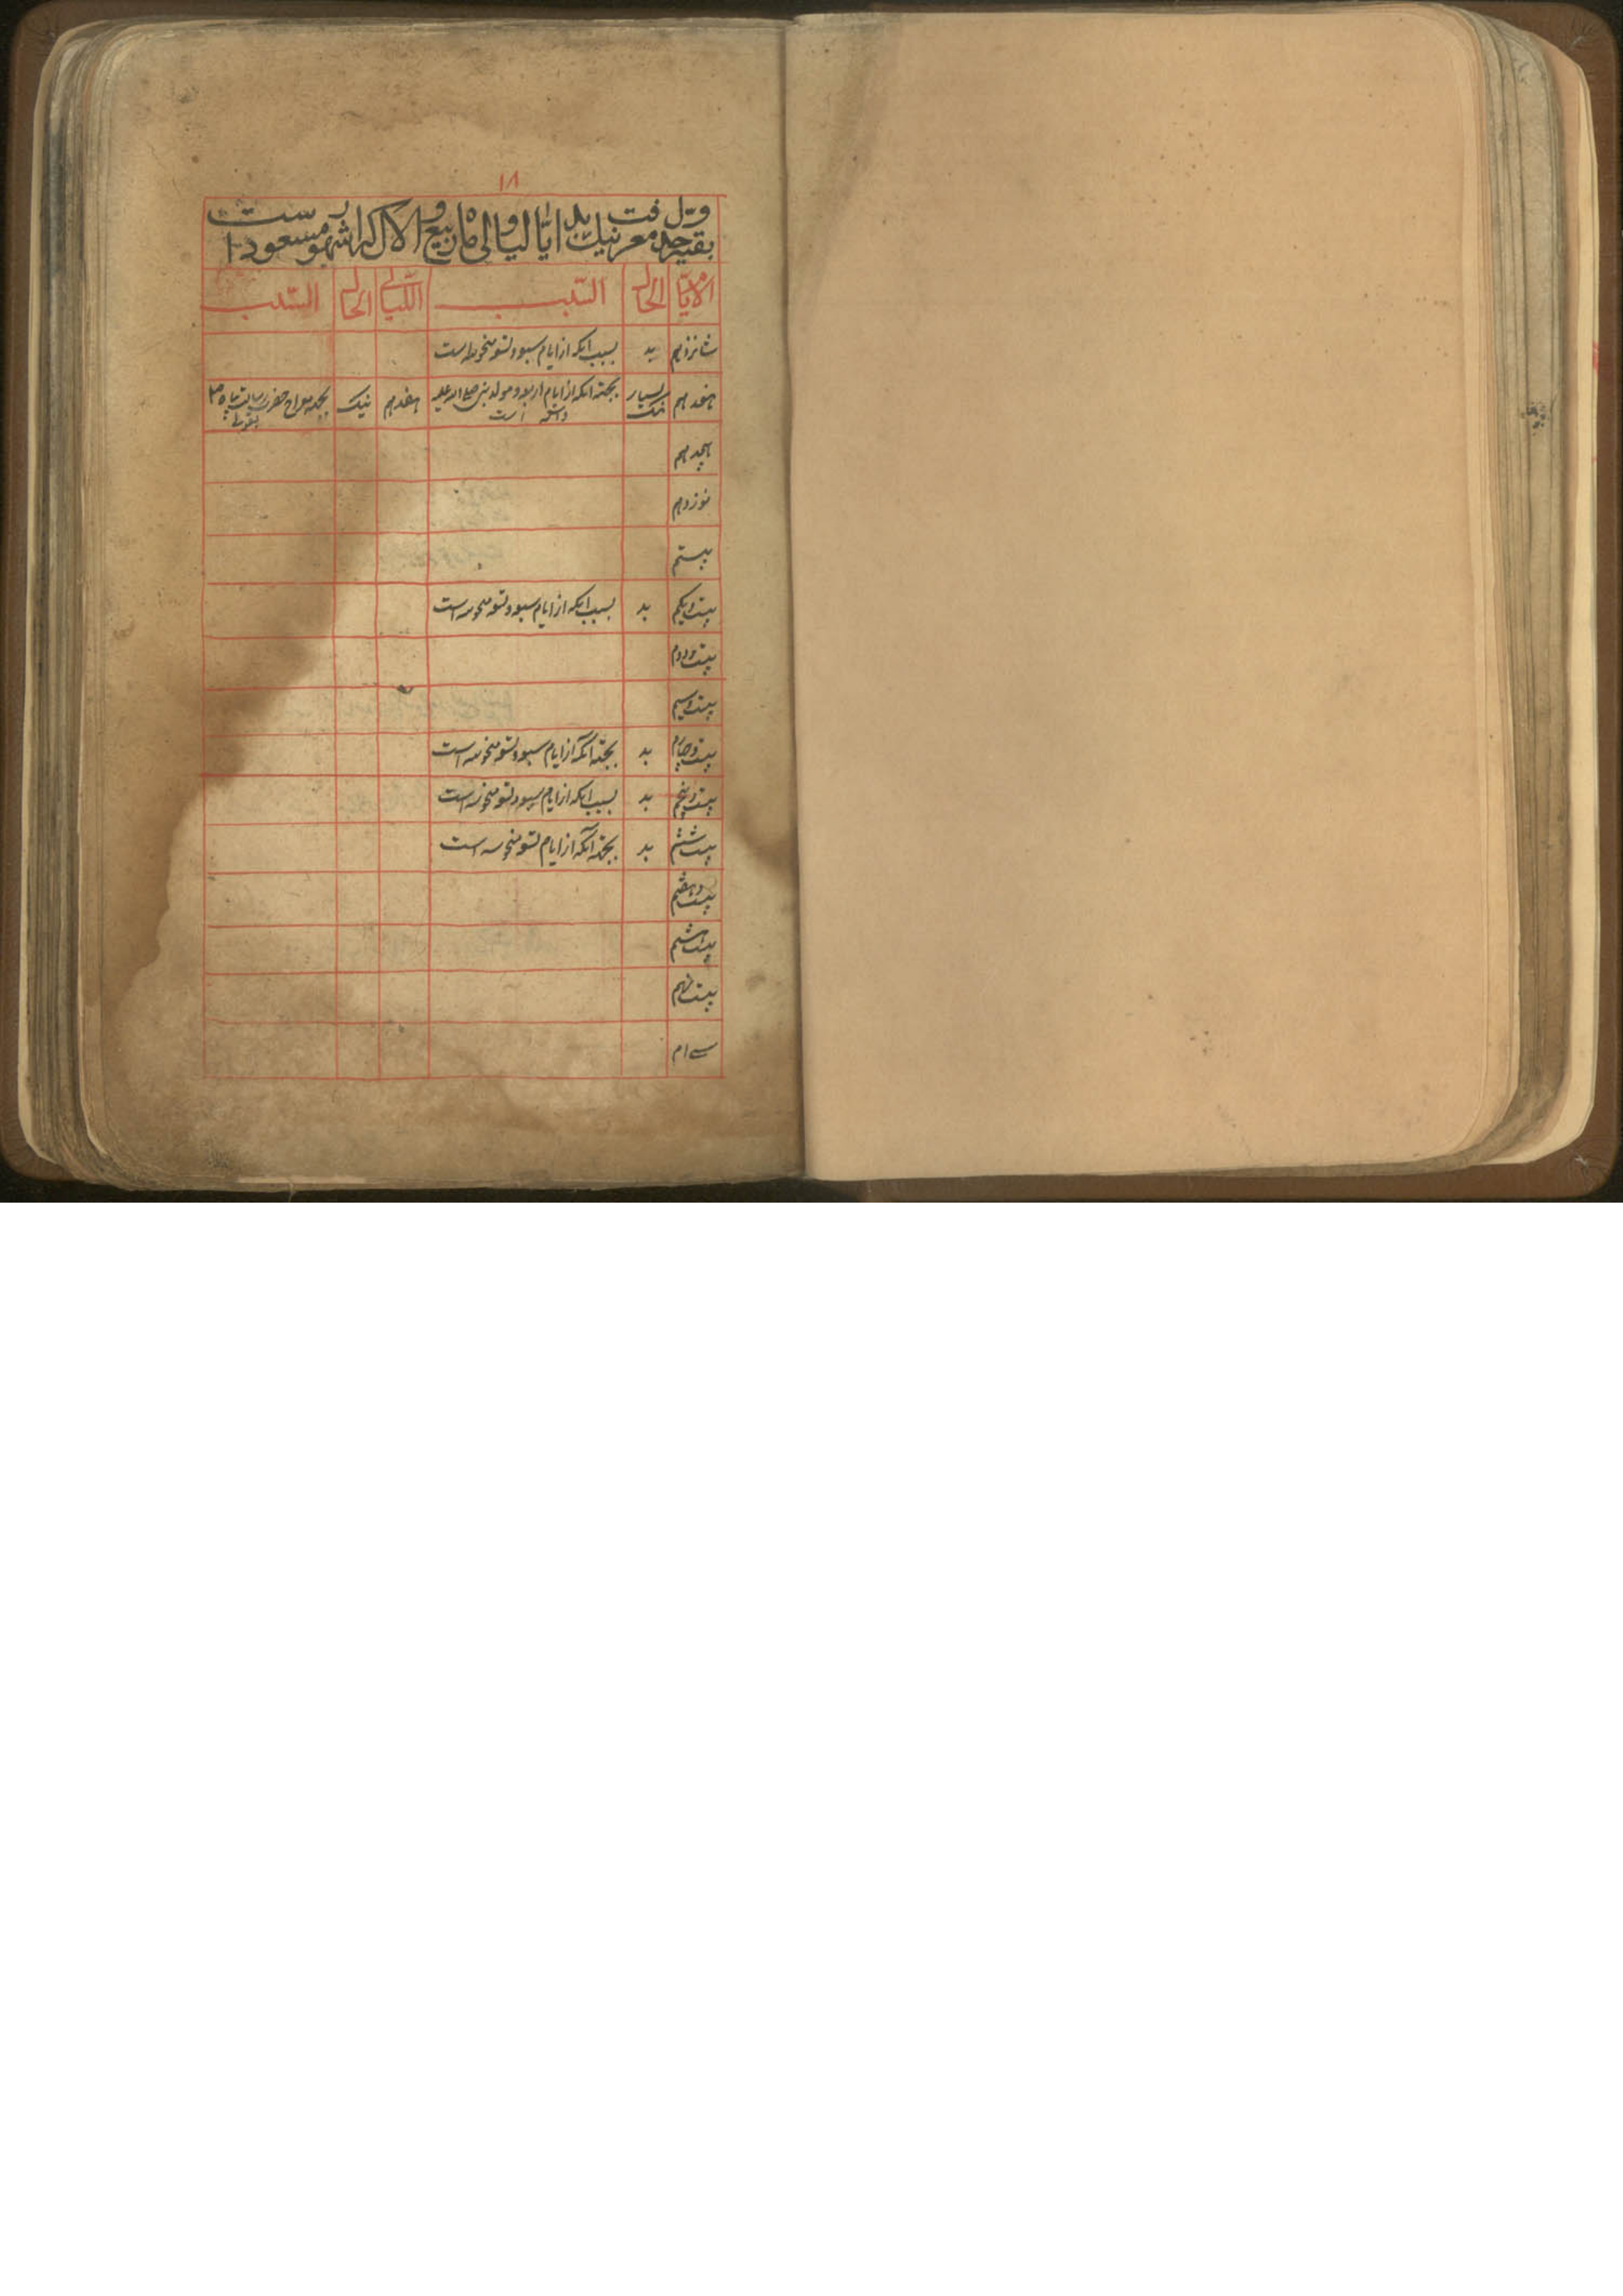 ۱۸
بقیه جدول معرفت نیک و بد ایام و لیالی ماه ربیع الاول که از شهور مسعود است
الایام الحال السبب اللیالی الحال السبب
شانزدهم بد بسبب آنکه از ایام سبعه و تسعه منحوسه است
هفدهم بسیار نیک بجهته آنکه از ایام اربعه و مولد نبی صلی الله علیه و آله است هفدهم نیک بجهته معراج حضرت رسالت پناه ص بقولی
هجدهم
نوزدهم
بیستم
بیست و یکم بد بسبب آنکه از ایام سبعه و تسعه منحوسه است
بیست و دوم
بیست و سیم
بیست و چهارم بد بجهته آنکه از ایام سبعه و تسعه منحوسه است
بیست و پنجم بد بسبب آنکه از ایام سبعه و تسعه منحوسه است
بیست ششم بد بجهته آنکه از ایام تسعه منحوسه است
بیست و هفتم
بیست هشتم
بیست نهم
سی ام